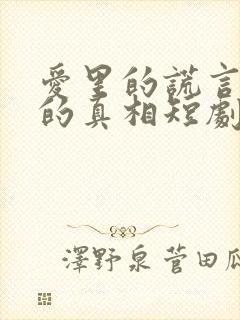 愛里的謊言
的真相短劇
澤野泉 菅田